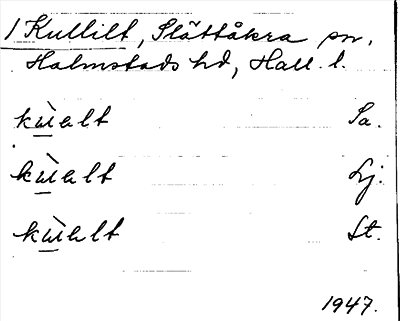 1 Kullilt, Slättåkra sn,
Halmstads hd, Hall. l.
kùalt Sa.
kùalt Lj.
kùalt St.
1947.